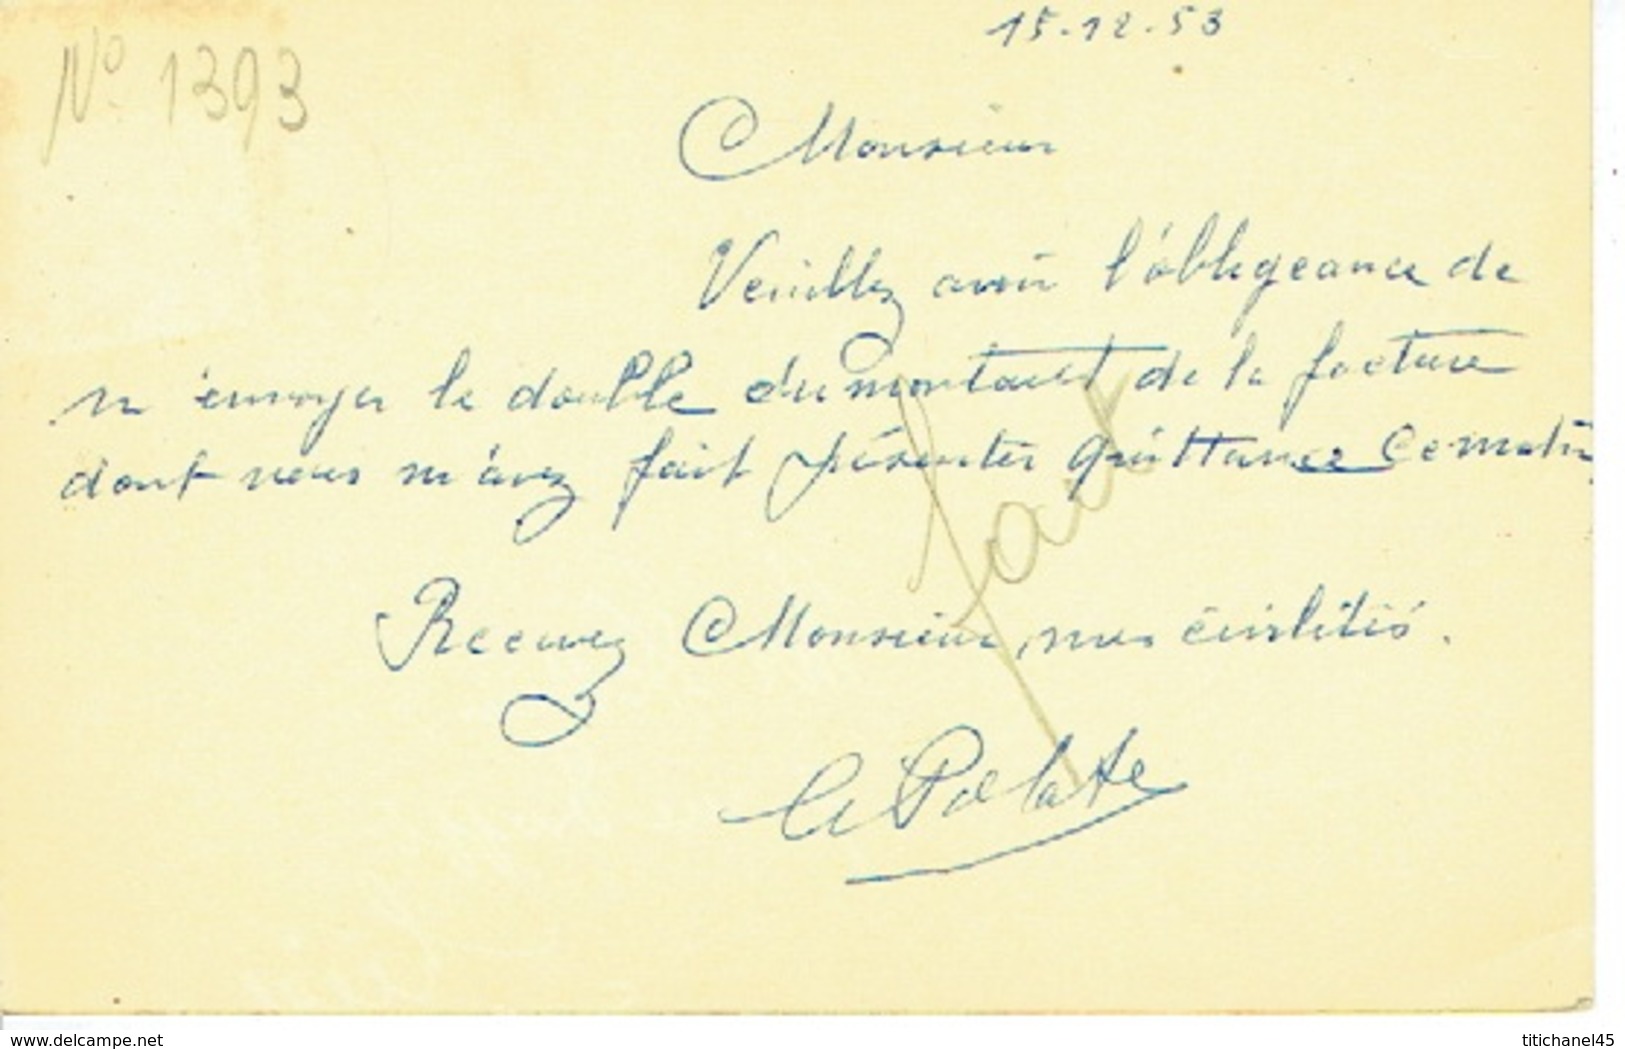 15-12-53
N° 1393
Monsieur
Veuillez avoir l'obligeance de
m'envoyer le double du montant de la facture
dont vous m'avez fait présenter quittance ce matin
fait
Recevez Monsieur, mes civilités.
www.delcampe.net
titichanel45